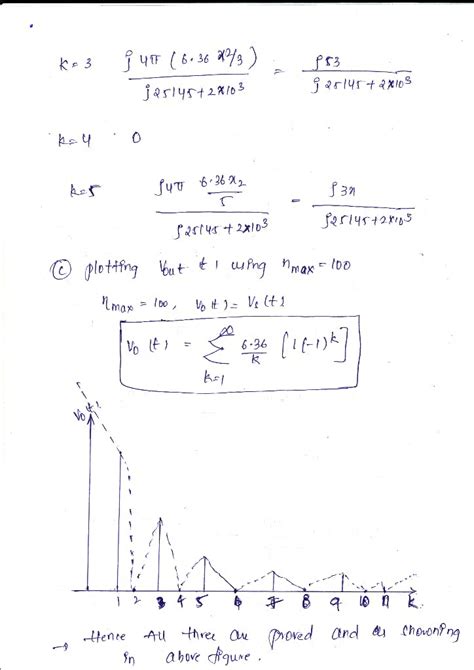 k = 3 j4π (6.36 x2/3) / j25145+2x10³ = j53 / j25145+2x10³
k=4 0
k=5 j4π 6.36x2/5 / j25145+2x10³ = j32 / j25145+2x10³
(c) plotting Vout t1 using nmax=100
nmax = 100, Vo(t)= Vs(t)
Vo (t) = ∞ Σ k=1 6.36/k [1(-1)^k]
Vo(t)
1 2 3 4 5 6 7 8 9 10 11 k
→ Hence All three are proved and as showning
in above figure.